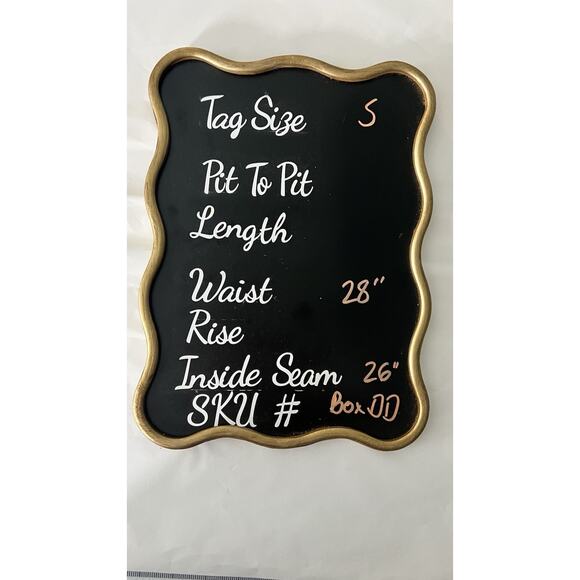 Tag Size S
Pit To Pit
Length
Waist 28"
Rise
Inside Seam 26"
SKU # Box DD